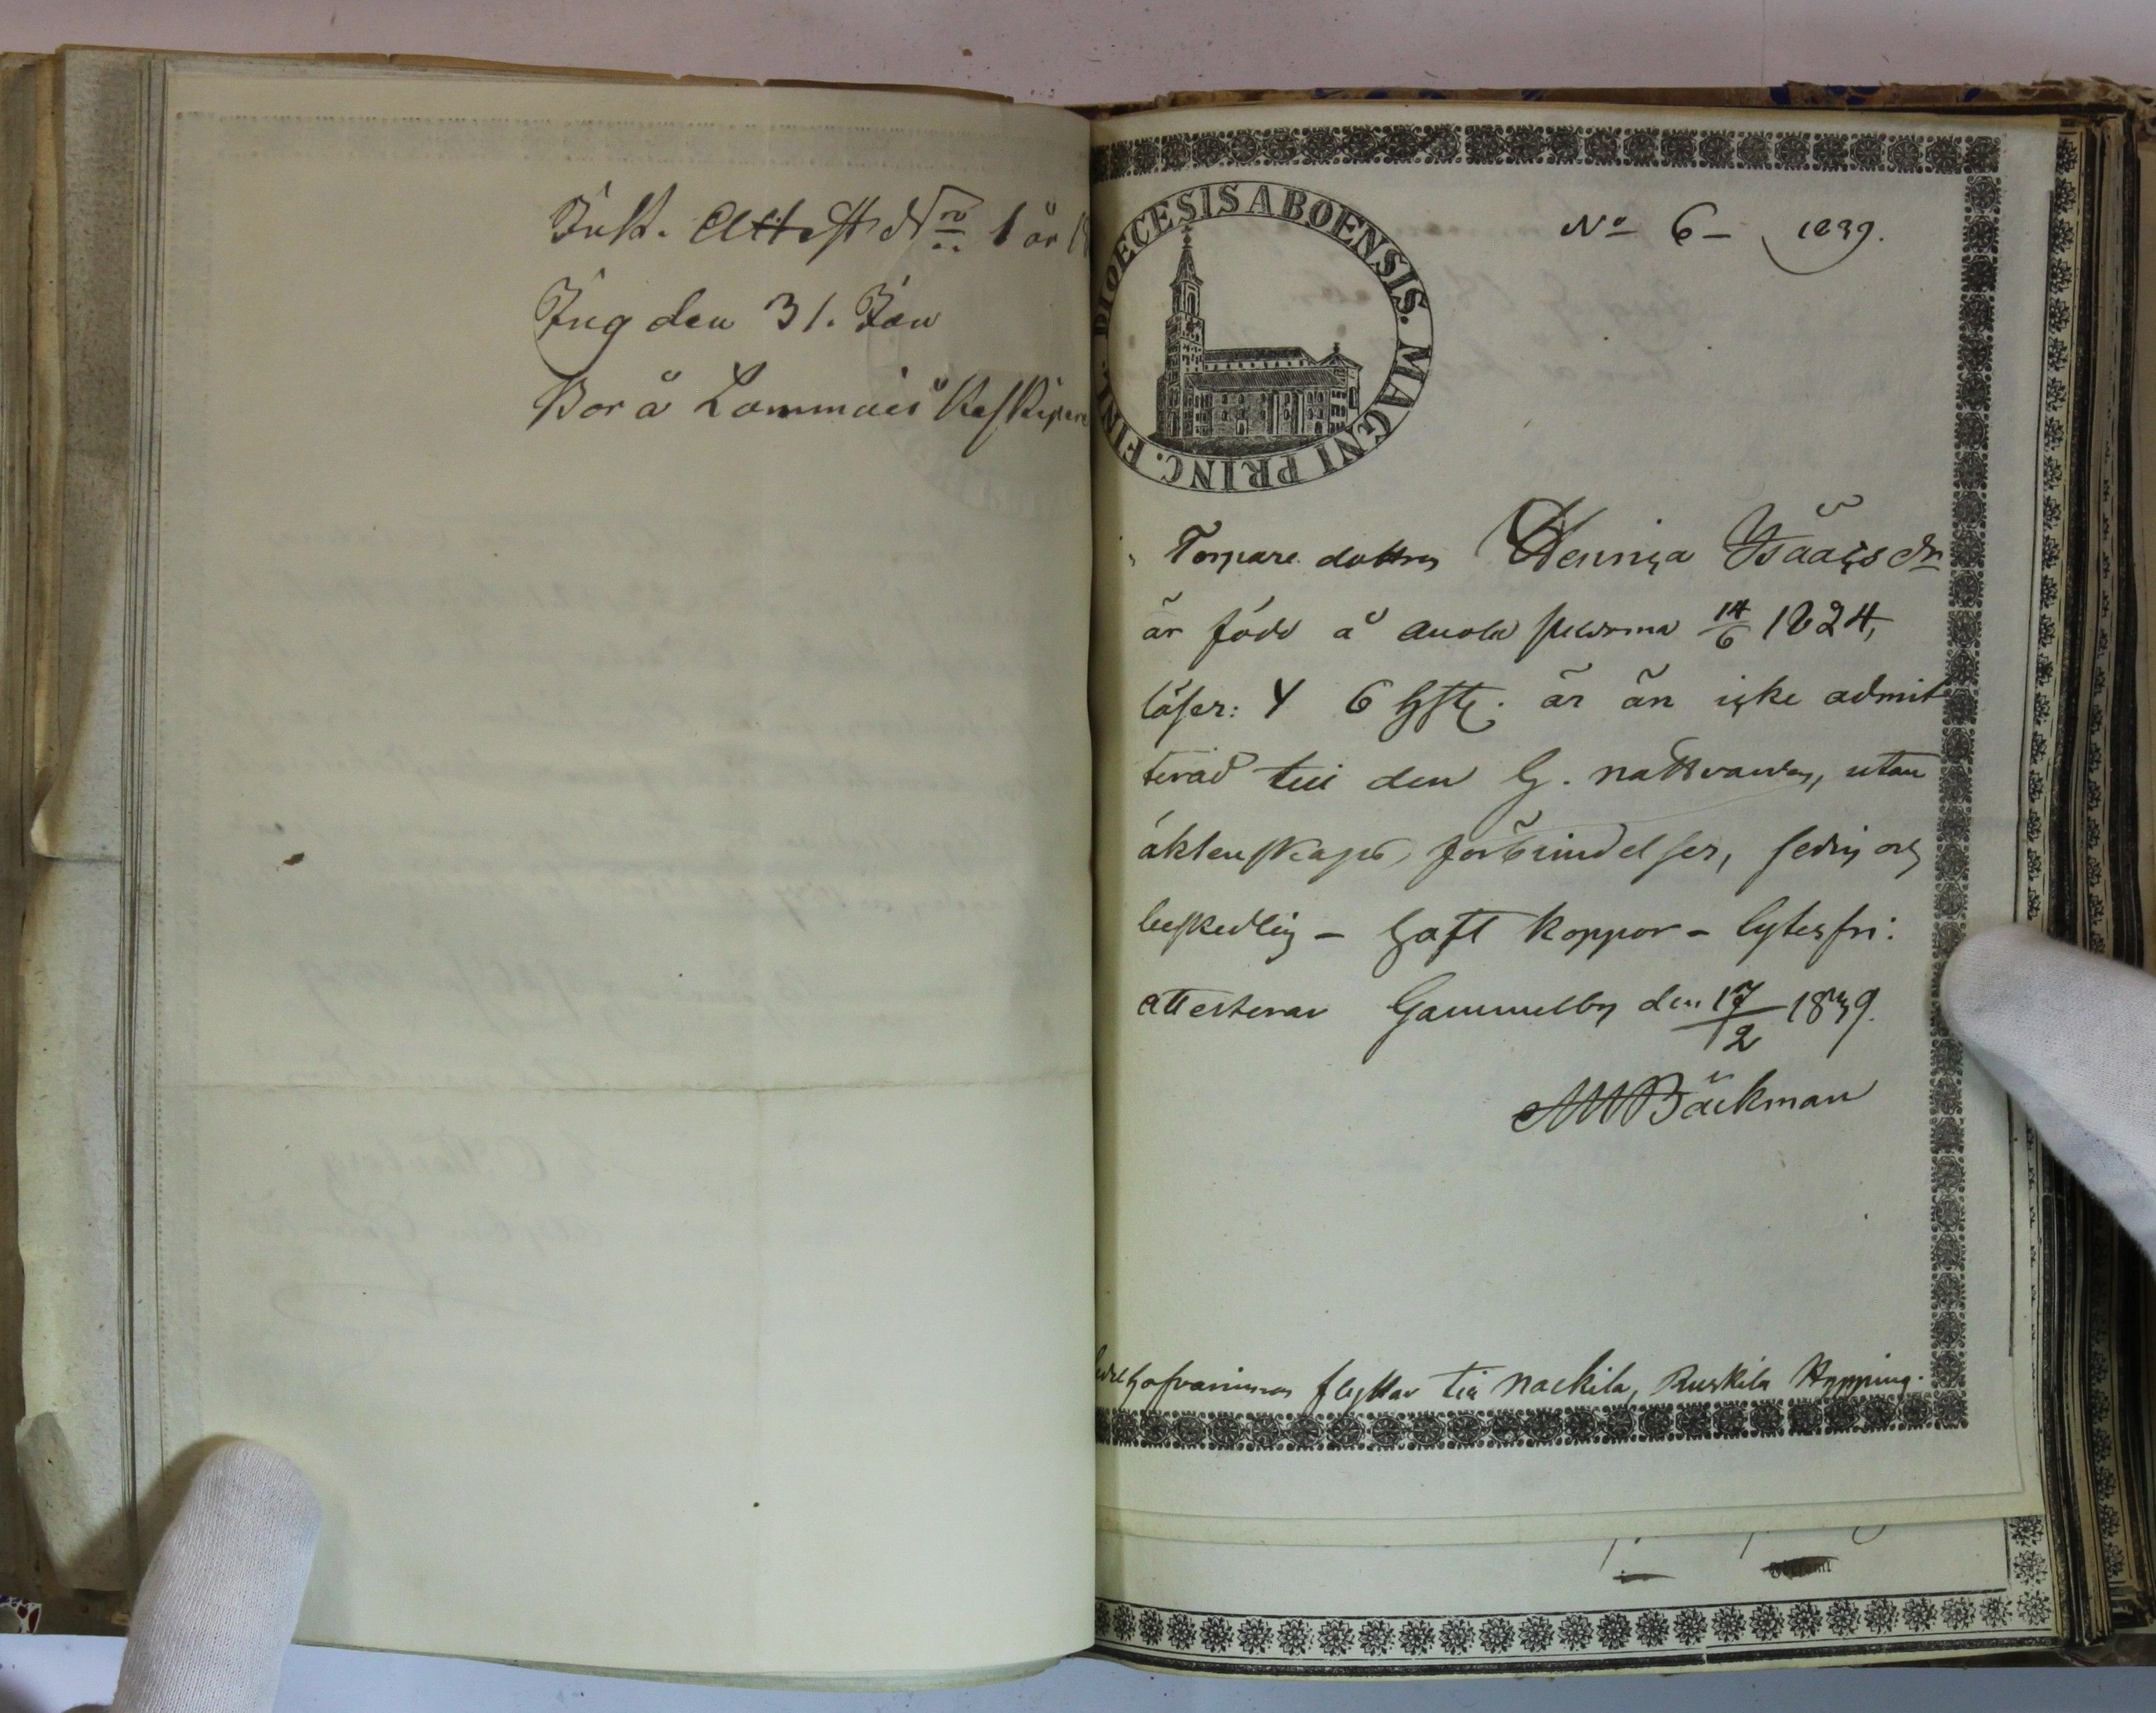 Inst. Attest N:ro 1 år
Ing den 31. Jan
Bor å Lammais Keskipere
DIOECESIS ABOENSIS. MAGNI PRINC. FINL.
No 6 – 1839.
Torpare dottren Hennica Isaacsdr
är född å Anola 14/6 1824,
läser: Y 6 är än icke admit
terad till den H. nattvarden, utan
äktenskaps förbindelser, sedig och
beskedlig – haft koppor – lytesfri:
attesterar Gammelby den 17/2 1839.
Bäckman
flyttar till Nackila, Ruskila Hyppingi.